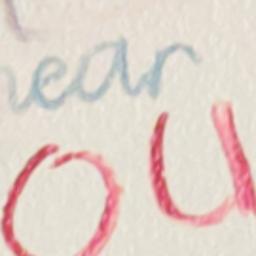 ear
ou